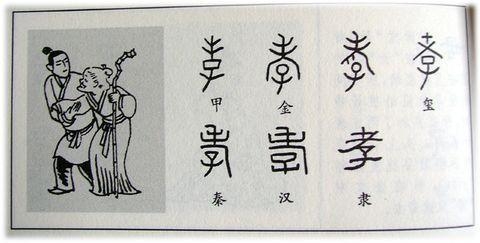 孝 孝 孝 孝
甲 金 玺
孝 孝 孝
秦 汉 隶